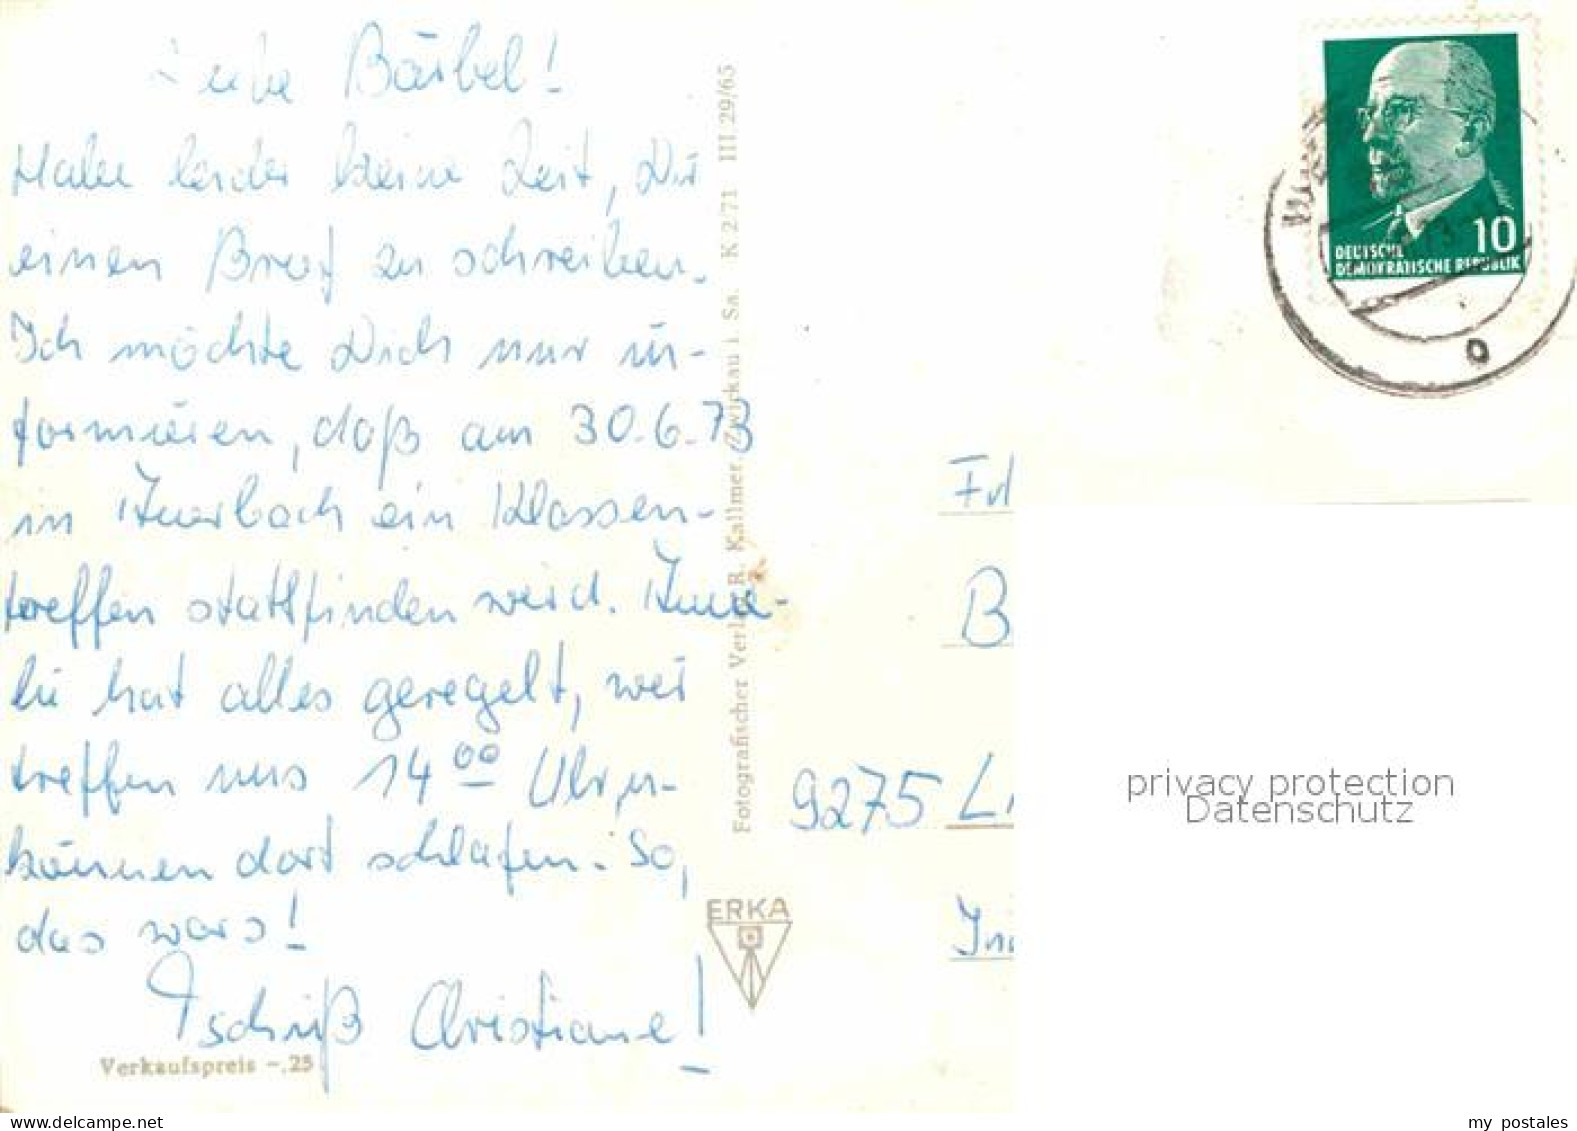 Liebe Bärbel!
Habe leider keine Zeit, Dir
einen Brief zu schreiben.
Ich möchte Dich nur in-
formieren, daß am 30.6.73
in Auerbach ein Klassen-
treffen stattfinden wird. Anne-
lie hat alles geregelt, wir
treffen uns 14 00 Uhr, u.
können dort schlafen. So,
das wars!
Tschüß Christiane!
Verkaufspreis -,25
Fotografischer Verlag R. Kallmer, Zwickau i. Sa. K 2/71 III 29/65
ERKA
10
DEUTSCHE
DEMOKRATISCHE REPUBLIK
Frl
B
9275 L
privacy protection
Datenschutz
my postales